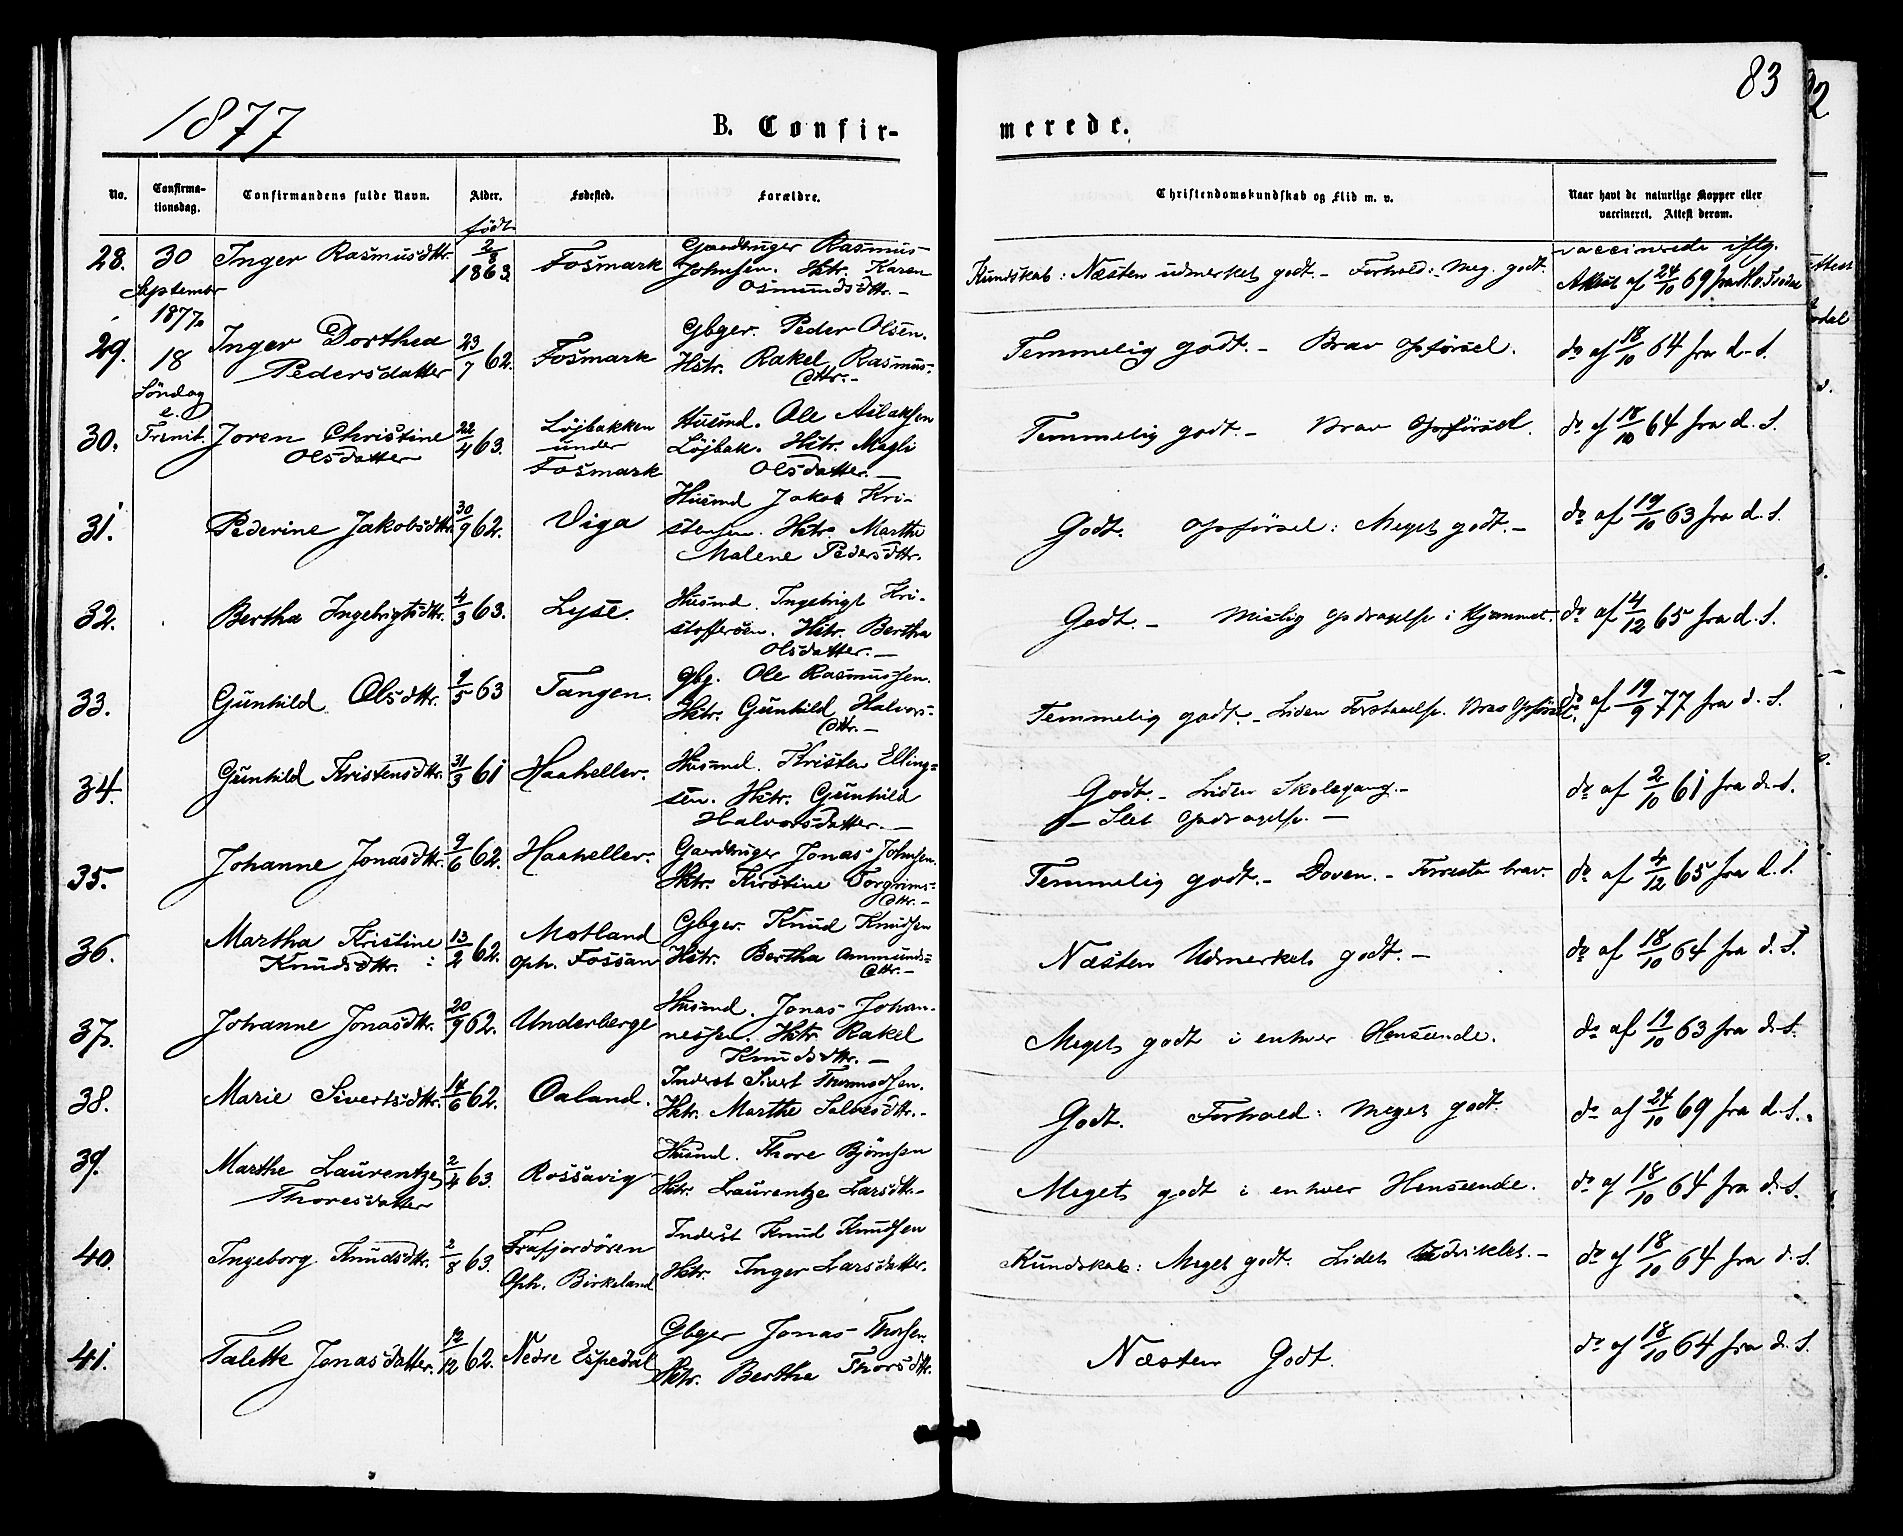 1877
B. Confir-
merede.
83
No.
Confirma-
tionsdag.
Confirmandens fulde Navn.
Alder.
Fødested.
Forældre.
Christendomskundskab og Flid m. v.
Naar havt de naturlige Kopper eller
vaccineret. Attest derom.
født
28. 30 Inger Rasmusdttr. 2/8 1863. Fosmark Gaardbruger Rasmus
Johnsen. Hstr. Karen
Osmundsdttr. —
Kundskab: Næsten udmerket godt. — Forhold: Meg. godt.
vaccinerede iflg.
Attest af 24/10 69 fra
September
1877
29. 18 Inger Dorthea
Pedersdatter 23/7 62. Fosmark Gbger. Peder Olsen.
Hstr. Rakel Rasmus-
dttr. —
Temmelig godt. — Brav Opførsel.
do af 18/10 64 fra d. S.
Søndag
e.
Trinit.
30. Joren Christine
Olsdatter 22/4 63. Løjbakken
under
Fosmark
Husmd. Ole Aslaksen
Løjbak. Hstr. Magli
Olsdatter. —
Temmelig godt. — Brav Opførsel.
do af 18/10 64 fra d. S.
31. Pederine Jakobsdttr. 30/9 62. Viga Husmd Jakob Kri-
stensen. Hstr. Marthe
Malene Pedersdttr.
Godt. Opførsel: Meget godt. —
do af 19/10 63 fra d. S.
32. Bertha Ingebrigtsdttr. 4/3 63. Lyse. Husmd. Ingebrigt Kri-
stoffersen. Hstr. Bertha
Olsdatter. —
Godt. — Mislig Opdragelse i Hjemmet.
do af 4/12 65 fra d. S.
33. Gunhild Olsdttr. 9/5 63 Tangen. Gbg. Ole Rasmussen.
Hstr. Gunhild Halvors-
dttr. —
Temmelig godt. — Liden Forstaaelse. Brav Opførsel.
do af 19/9 77 fra d. S.
34. Gunhild Kristensdttr. 31/3 61 Haaheller. Husmd. Kristen Elling-
sen. Hstr. Gunhild
Halvorsdatter. —
Godt. — Liden Skolegang. —
— Slet Opdragelse. —
do af 2/10 61 fra d. S.
35. Johanne Jonasdttr. 9/6 62. Haaheller. Gaardbruger Jonas Johnsen.
Hstr. Kirstine Torgrims-
dttr. —
Temmelig godt. — Doven. — Forresten brav.
do af 4/12 65 fra d. S.
36. Martha Kristine
Knudsdttr. 13/2 62. Motland
Oph. Fossan
Gbger. Knud Knudsen
Hstr. Bertha Ommunds-
dttr. —
Næsten Udmerket godt. —
do af 18/10 64 fra d. S.
37. Johanne Jonasdttr. 20/9 62. Underberge Husmd. Jonas Johan-
nessen. Hstr. Rakel
Knudsdttr. —
Meget godt i enhver Henseende.
do af 19/10 63 fra d. S.
38. Marie Sivertsdttr. 14/6 62. Oaland. Inderst Sivert
Hstr. Marthe Salvesdttr. —
Godt. Forhold: Meget godt.
do af 24/10 69 fra d. S.
39. Marthe Laurentze
Thoresdatter 2/4 63. Rossavig Husmd. Thore Bjørnsen
Hstr. Laurentze Larsdttr. —
Meget godt i enhver Henseende.
do af 18/10 64 fra d. S.
40. Ingeborg Knudsdttr. 2/8 63. Frafjordøren
Oph. Birkeland
Inderst Knud Knudsen
Hstr. Inger Larsdatter.
Kundskab: Meget godt. Lidet udviklet. —
do af 18/10 64 fra d. S.
41. Talette Jonasdatter. 12/12 62. Nedre Espedal Gbger Jonas Thorsen
Hstr. Berthe Thorsdttr.
Næsten Godt.
do af 18/10 64 fra d. S.